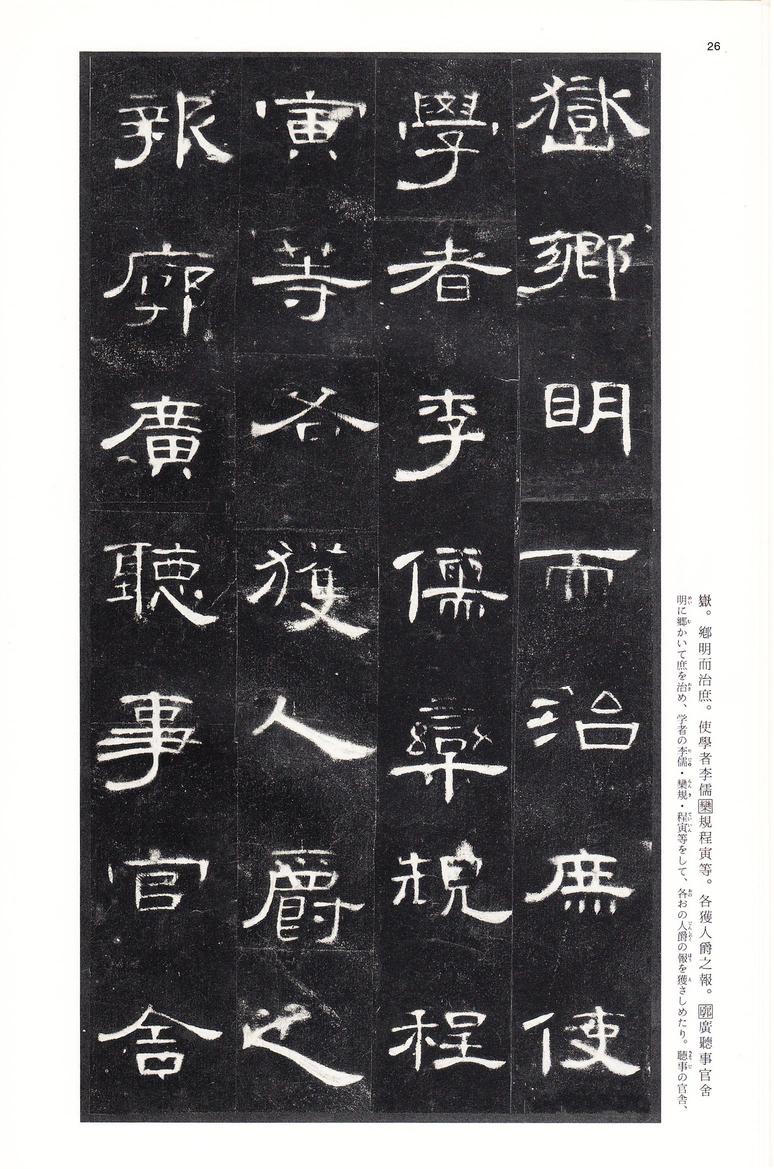 26
嶽鄉明而治庶使
學者李儒欒規程
寅等各獲人爵之
報廓廣聽事官舍
嶽。鄉明而治庶。使學者李儒欒規程寅等。各獲人爵之報。廓廣聽事官舍
明に郷かいて庶を治め、学者の李儒・欒規・程寅等をして、各おの人爵の報を獲さしめたり。聴事の官舎、